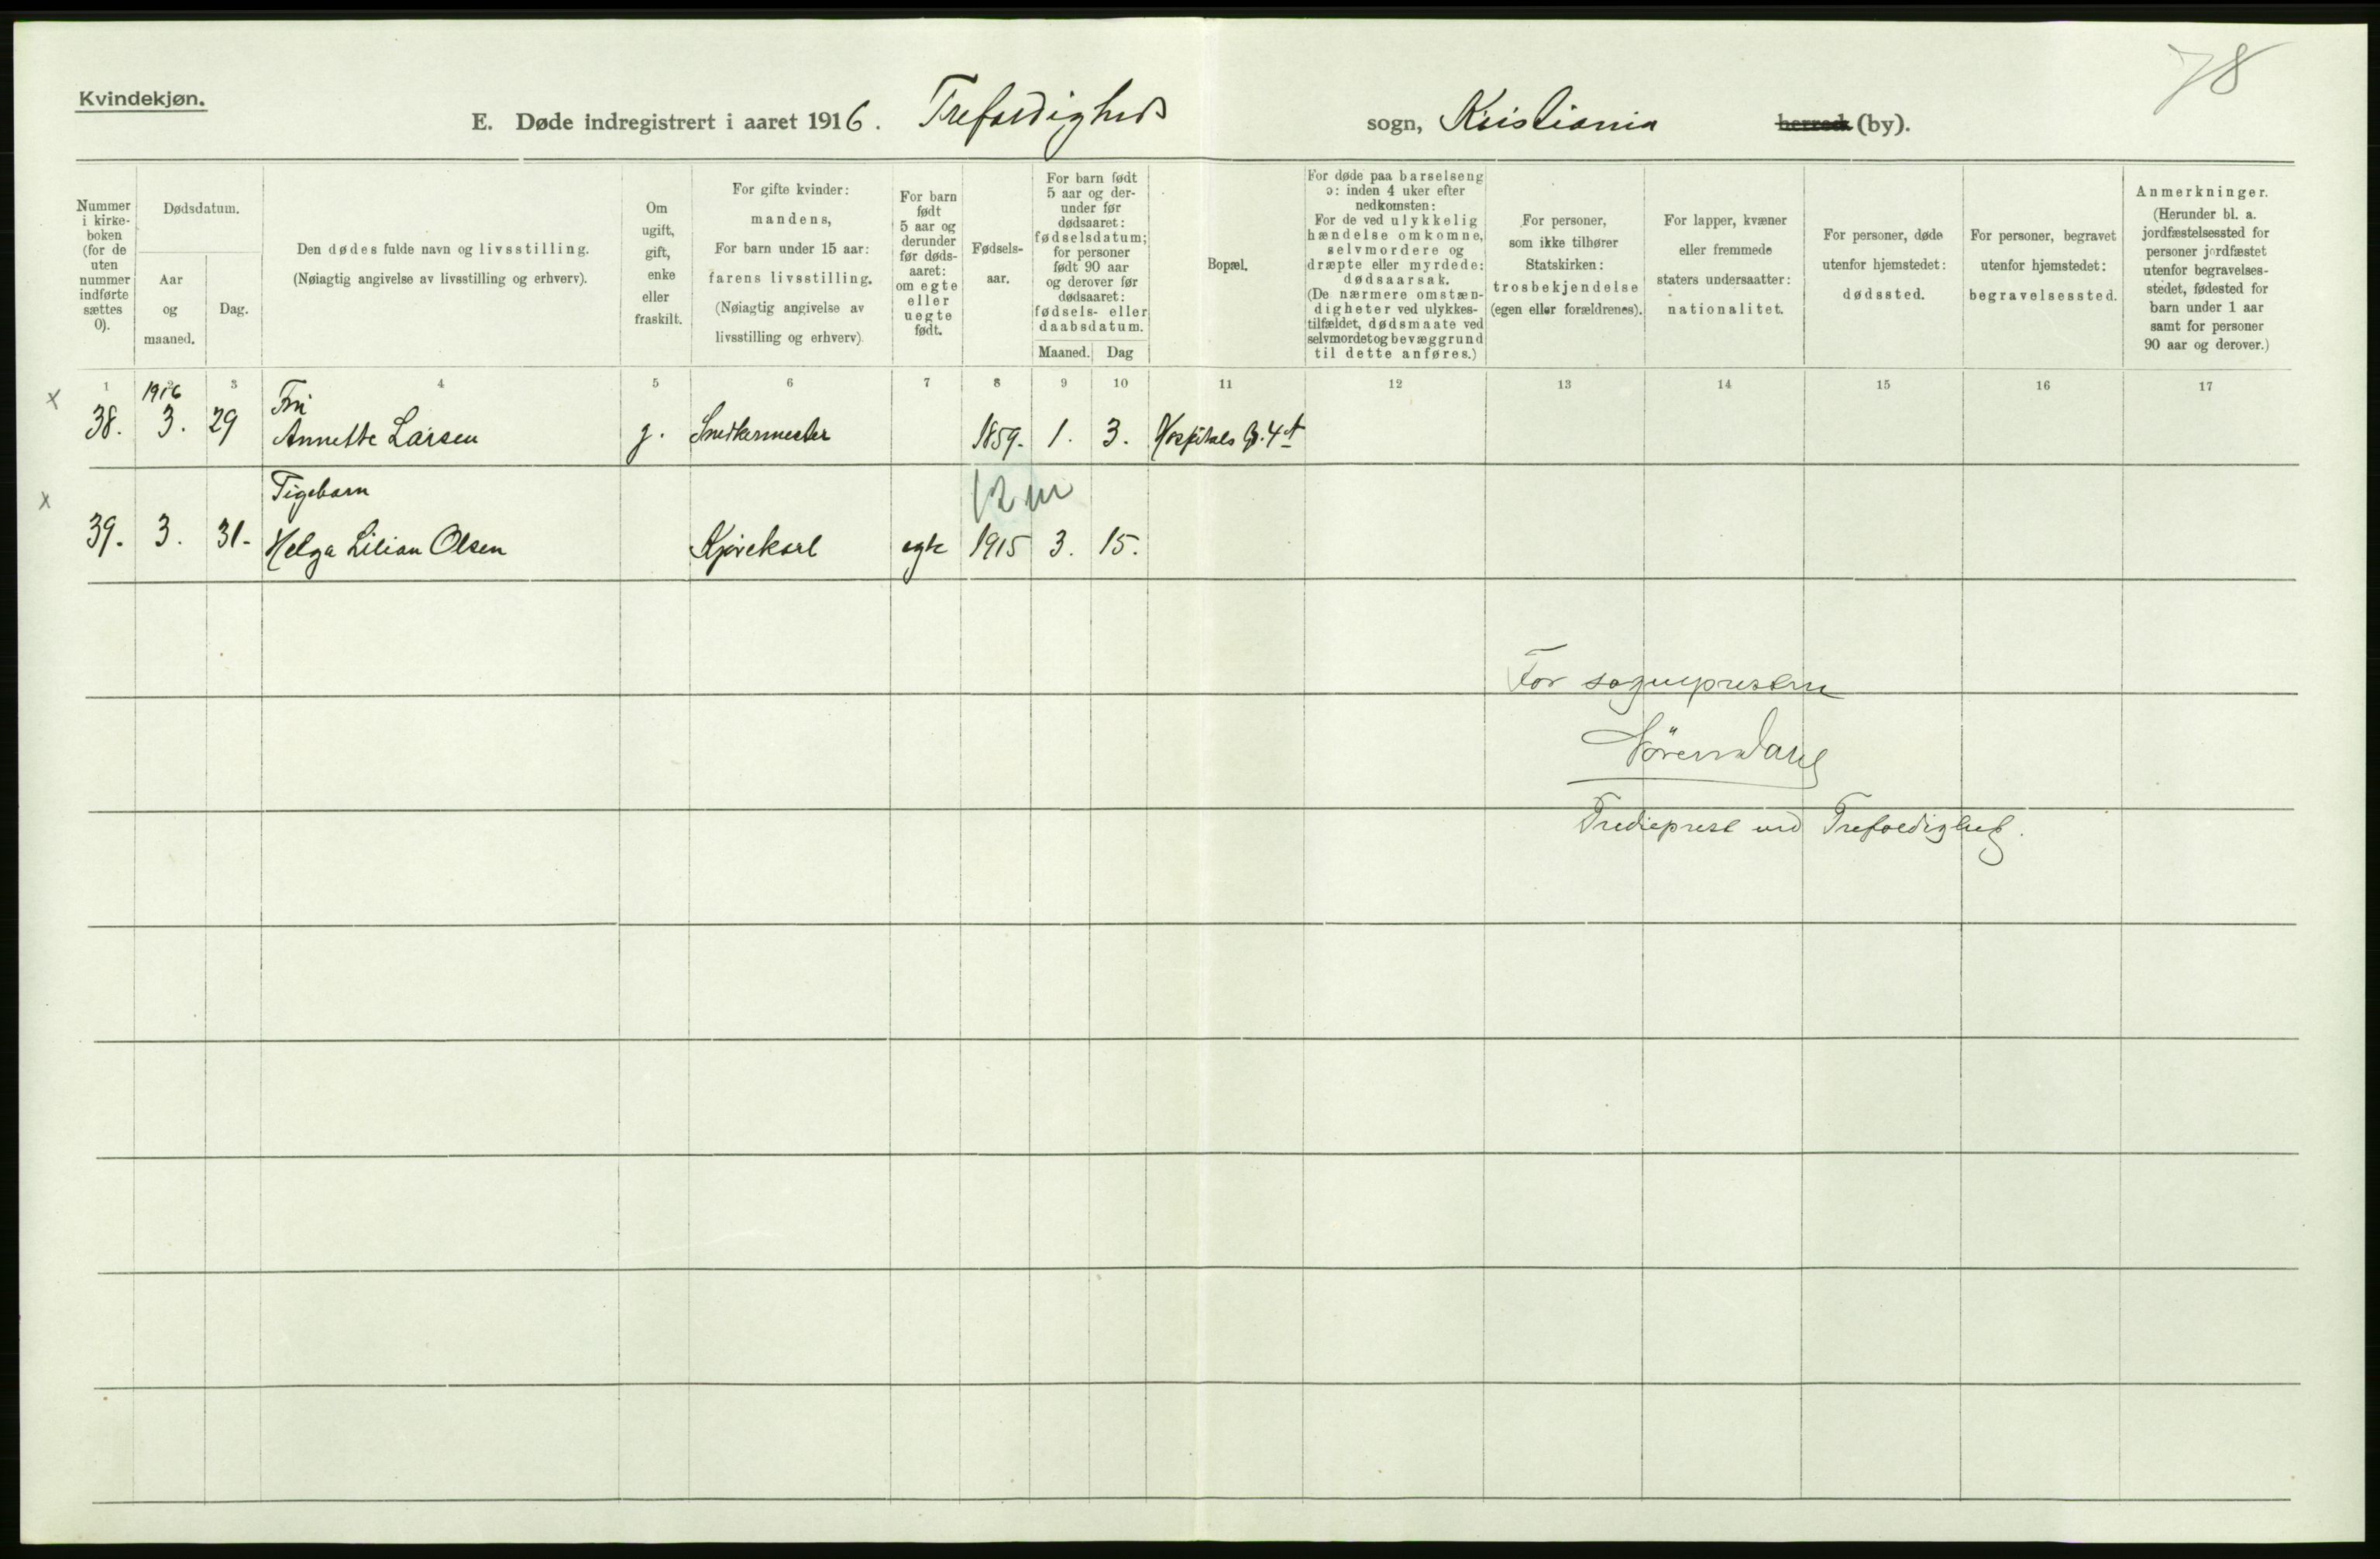 78
Kvindekjøn.
E. Døde indregistrert i aaret 1916. Trefoldigheds sogn, Kristiania herred (by).
Nummer
i kirke-
boken
(for de
uten
nummer
indførte
sættes
0).
Dødsdatum.
Aar
og
maaned.
Dag.
Den dødes fulde navn og livsstilling.
(Nøiagtig angivelse av livsstilling og erhverv).
Om
ugift,
gift,
enke
eller
fraskilt.
For gifte kvinder:
mandens,
For barn under 15 aar:
farens livsstilling.
(Nøiagtig angivelse av
livsstilling og erhverv).
For barn
født
5 aar og
derunder
før døds-
aaret:
om egte
eller
uegte
født.
Fødsels-
aar.
For barn født
5 aar og der-
under før
dødsaaret:
fødselsdatum;
for personer
født 90 aar
og derover før
dødsaaret:
fødsels- eller
daabsdatum.
Maaned. Dag
Bopæl.
For døde paa barselseng
ɔ: inden 4 uker efter
nedkomsten:
For de ved ulykkelig
hændelse omkomne,
selvmordere og
dræpte eller myrdede:
dødsaarsak.
(De nærmere omstæn-
digheter ved ulykkes-
tilfældet, dødsmaate ved
selvmordet og bevæggrund
til dette anføres.)
For personer,
som ikke tilhører
Statskirken:
trosbekjendelse
(egen eller forældrenes).
For lapper, kvæner
eller fremmede
staters undersaatter:
nationalitet.
For personer, døde
utenfor hjemstedet:
dødssted.
For personer, begravet
utenfor hjemstedet:
begravelsessted.
Anmerkninger.
(Herunder bl. a.
jordfæstelsessted for
personer jordfæstet
utenfor begravelses-
stedet, fødested for
barn under 1 aar
samt for personer
90 aar og derover.)
1 2 3 4 5 6 7 8 9 10 11 12 13 14 15 16 17
x 1916 Fru
38. 3. 29 Annette Larsen g. Snedkermester 1859. 1. 3. Hospitals G. 4 A
x Pigebarn 12 m
39. 3. 31. Helga Lilian Olsen Kjørekarl egte 1915 3. 15.
For sognepresten
Tredieprest ved Trefoldighet.